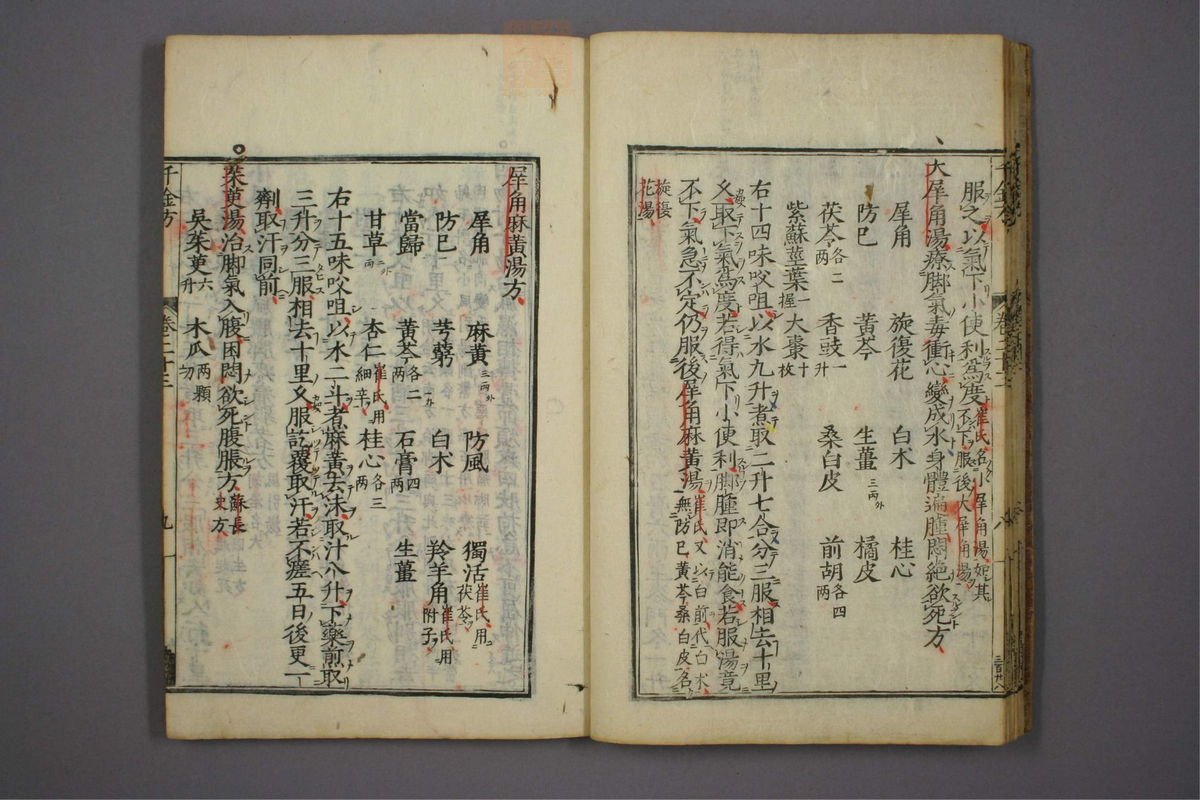 服之以氣下小便利爲度 崔氏名小犀角湯如其不下服後大犀角湯
大犀角湯療脚氣毒衝心變成水身體遍腫悶絕欲死方
犀角 旋復花 白朮 桂心
防巳 黄芩 生薑 三兩外 橘皮
茯苓各二兩 香豉一升 桑白皮 前胡各四兩
紫蘇莖葉一握 大棗十枚
右十四味㕮咀以水九升煮取二升七合分三服相去十里
久取下氣爲度若得氣下小便利脚腫即消能食若服湯竟
不下氣急不定仍服後犀角麻黄湯 崔氏又以白前代白朮無防巳黄芩桑白皮名
旋復花湯
犀角麻黄湯方
犀角 麻黄 三兩外 防風 獨活崔氏用茯苓
防巳 芎藭 白朮 羚羊角崔氏用附子
當歸 黄芩各二兩 石膏四兩 生薑
甘草二兩外 杏仁崔氏用細辛 桂心各三兩
右十五味㕮咀以水二斗煮麻黄去沫取汁八升下藥煎取
三升分三服相去十里久服訖覆取汗若不瘥五日後更一
劑取汗同前
茱萸湯治脚氣入腹困悶欲死腹脹方 蘇長史方
吳茱萸六升 木瓜兩顆切
千金方 卷二十二 九